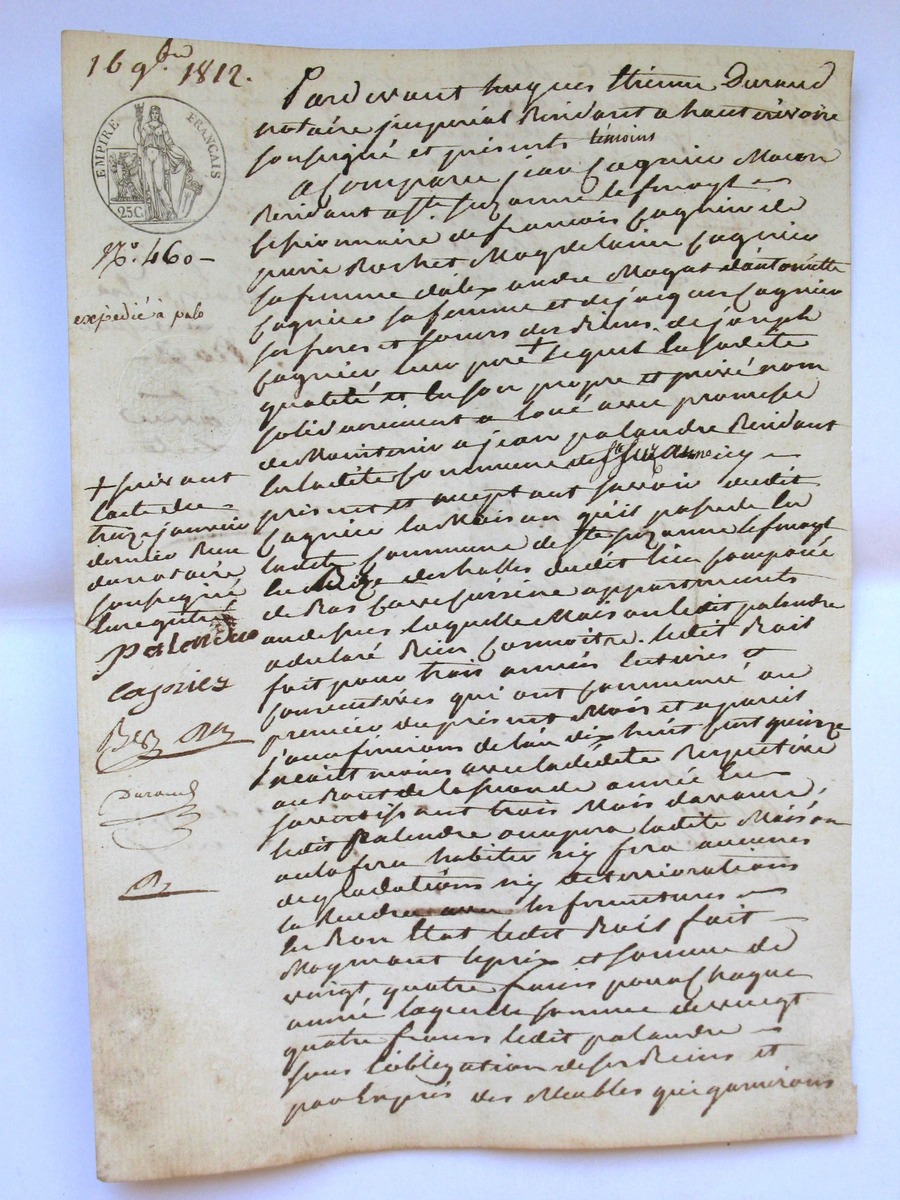 16 9bre 1812.
EMPIRE FRANÇAIS
25C.
No. 460 -
expédié à palo
Pardevant hugues Etienne Durand
notaire imperial Residant a hauterivoire
soussigné et présents témoins
a Comparu jean Cagnieu Macon
Residant a Ste. Suzanne
Cessionnaire de francois Cagnieu de
Rochet Magdelaine Cagnieu
sa femme d'alexandre Magat d'antoinette
Cagnieu sa femme et de jacques Cagnieu
ses freres et soeurs des Biens de joseph
Cagnieu leur pere + lequel En sadite
qualité et En son propre et privé nom
solidairement a loué avec promesse
de Maintenir a jean palandre Residant
En ladite Commune de Ste Suzanne icy -
présent et acceptant savoir dudit
Cagnieu la Maison qu'il possede En
ladite Commune de Ste. Suzanne
des halles dudit lieu Composée
de Bas Cave Cuisine appartements
au dessus laquelle Maison ledit palandre
a declaré Bien Connoitre. ledit Bail
fait pour trois années Entieres et
Consecutives qui ont Commencé au
premier du présent Mois et a pareil
jour finiront de l'an dix huit Cent quinze
neantmoins avec ladédite Respective
au Bout de la seconde année En
savertissant trois Mois davance,
ledit palandre occupera ladite Maison
ou la fera habiter ny fera aucunes
degradations ny deteriorations
la Rendra avec les fermetures -
En Bon Etat ledit Bail fait -
Moyennant le prix et somme de
vaingt quatre francs pour Chaque
année laquelle somme de vaingt
quatre francs ledit palandre -
sous l'obligation de ses Biens et
par Exprés des Meubles qui garniront
+ suivant
lacte du
treize janvier
dernier Reçu
du notaire
soussigné
Enregistré
palandre
Cagnieu
Durand